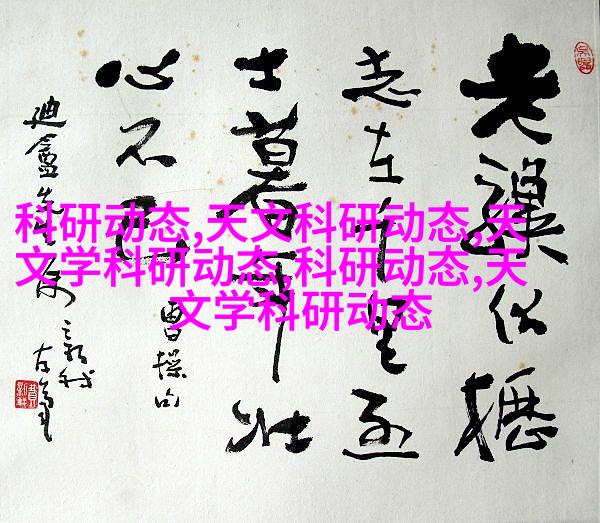 科研动态,天文科研动态,天
文学科研动态,科研动态,天
文学科研动态
老驥伏櫪
志在千里烈
士暮年壮
心不已
曹操句
迪盦先生属